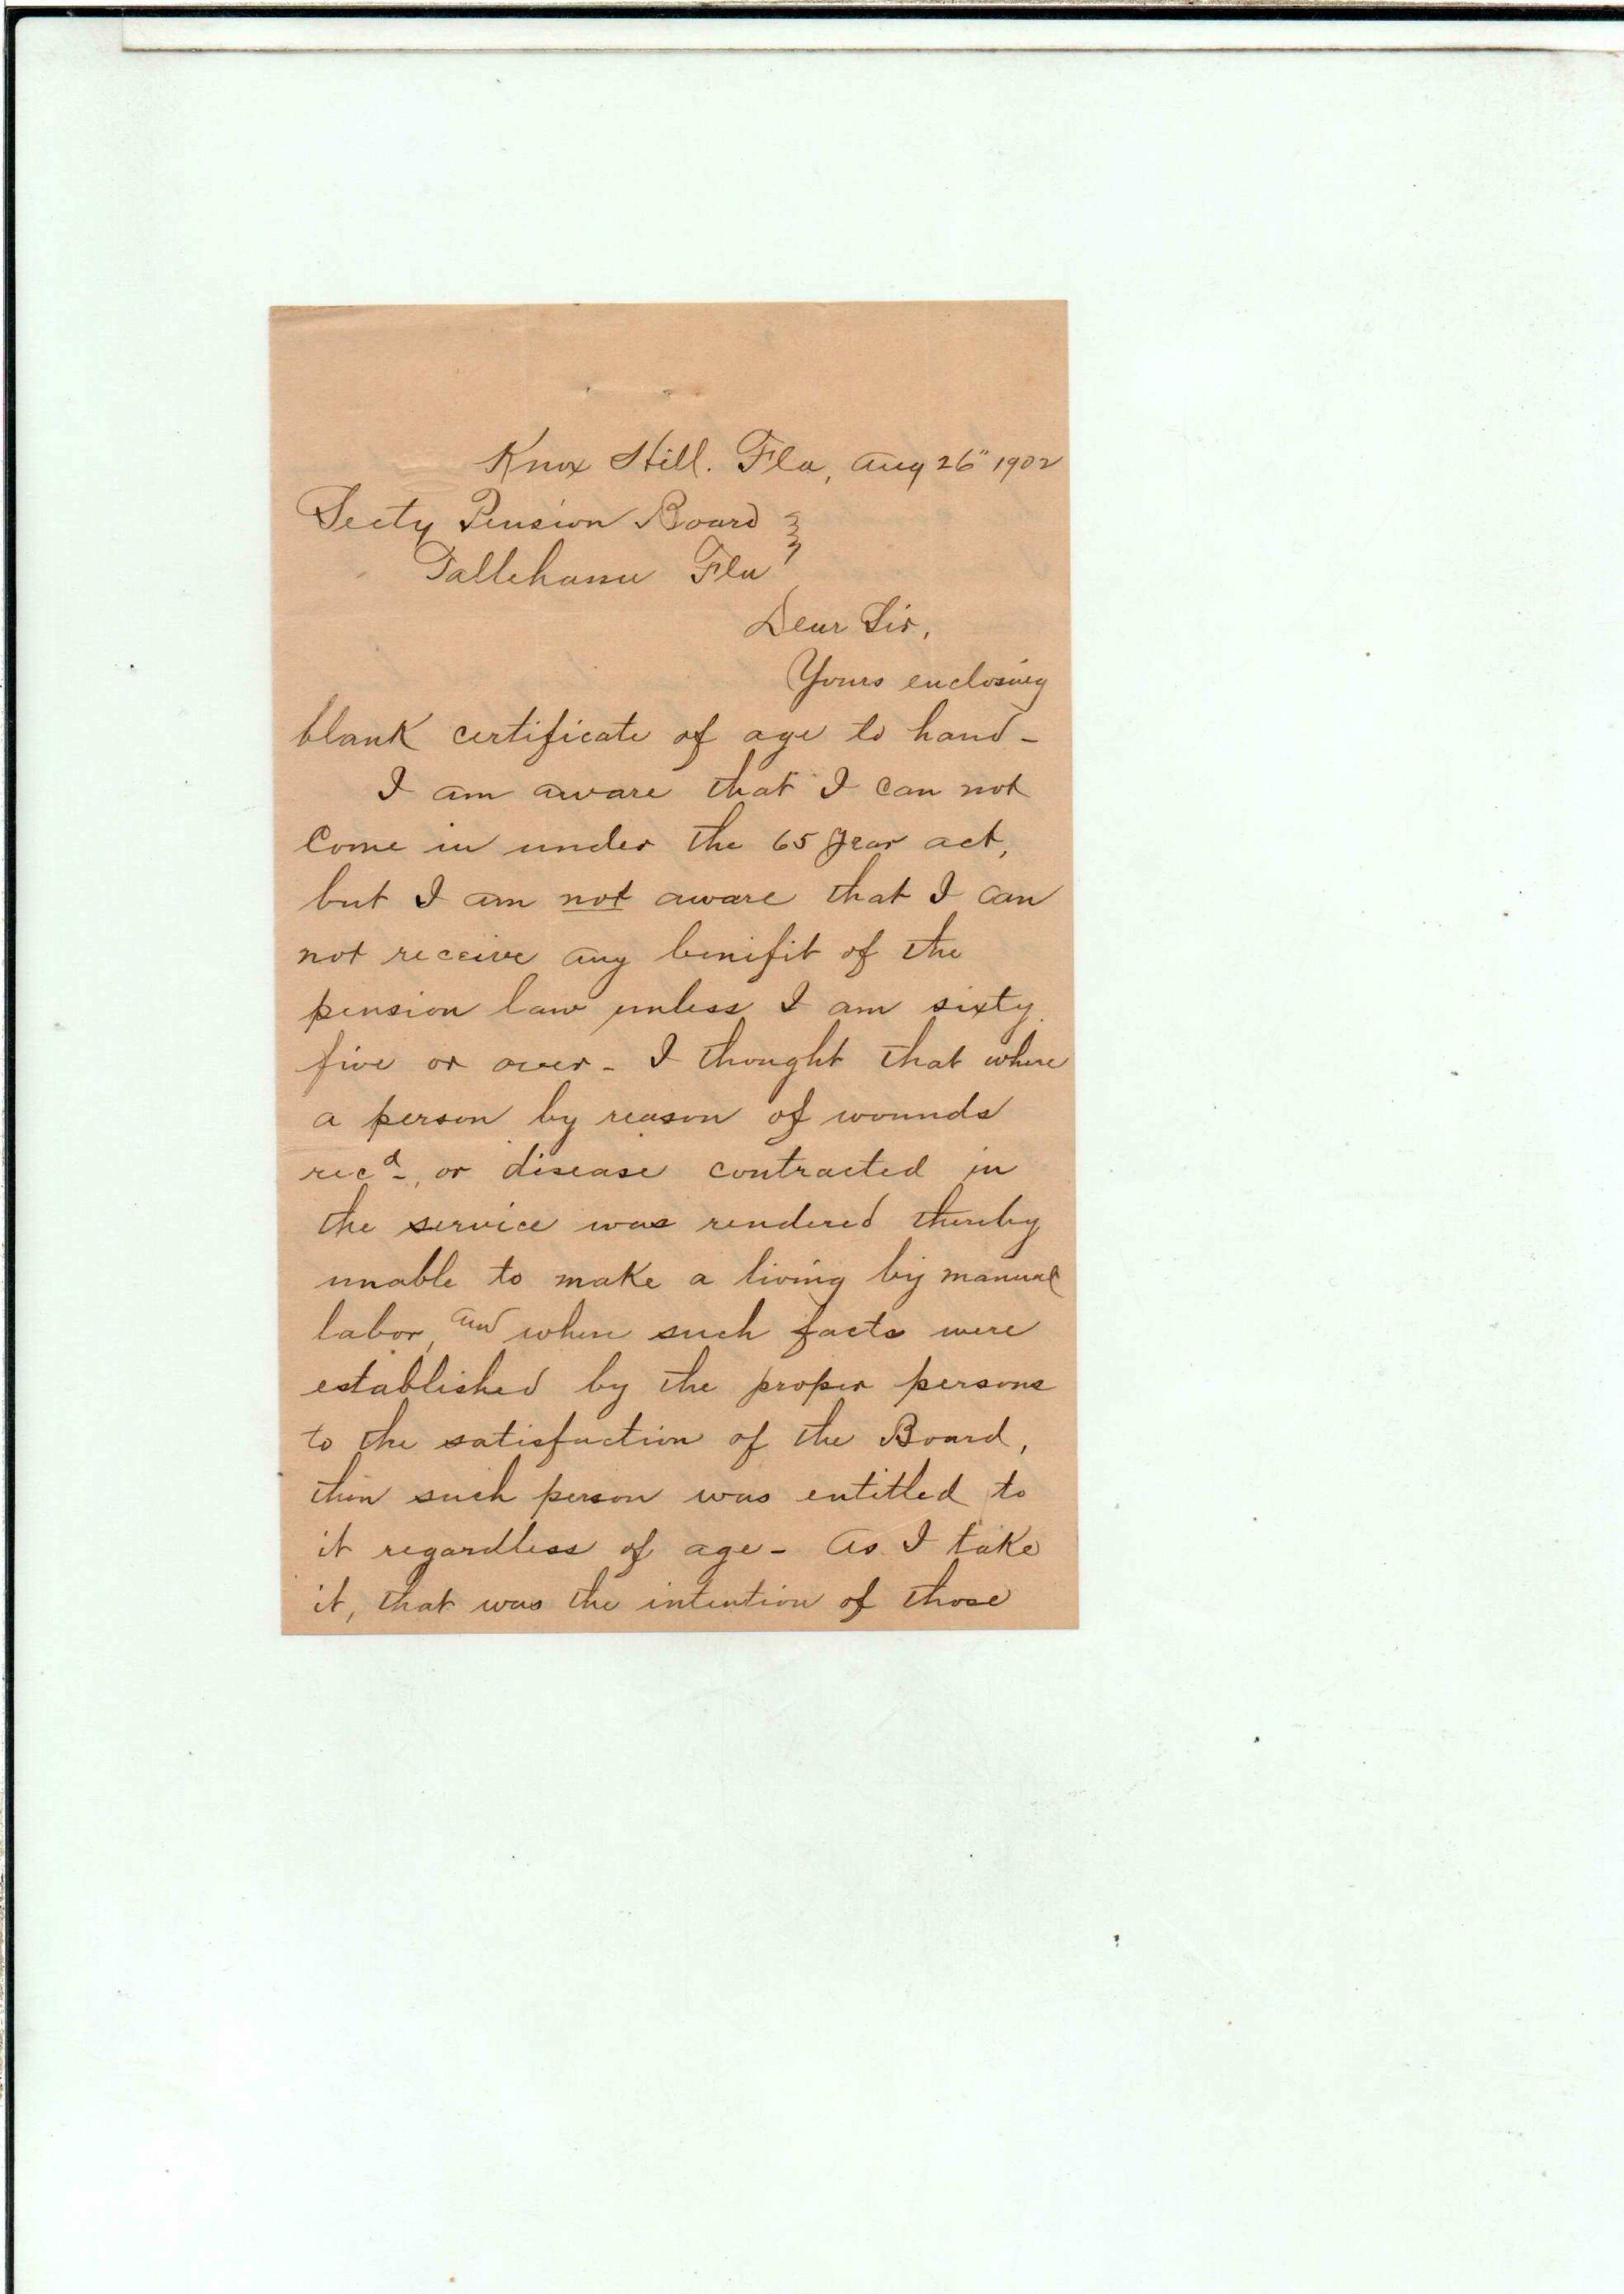 Knox Hill. Fla, Aug 26" 1902
Secty Pension Board
Tallehassee Fla
Dear Sir,
Yours enclosing
blank certificate of age to hand -
I am aware that I can not
Come in under the 65 year act,
but I am not aware that I can
not receive any benifit of the
pension law unless I am sixty
five or over - I thought that where
a person by reason of wounds
recd, or disease contracted in
the service was rendered thereby
unable to make a living by manual
labor, and when such facts were
established by the proper persons
to the satisfaction of the Board,
then such person was entitled to
it regardless of age - As I take
it, that was the intention of those